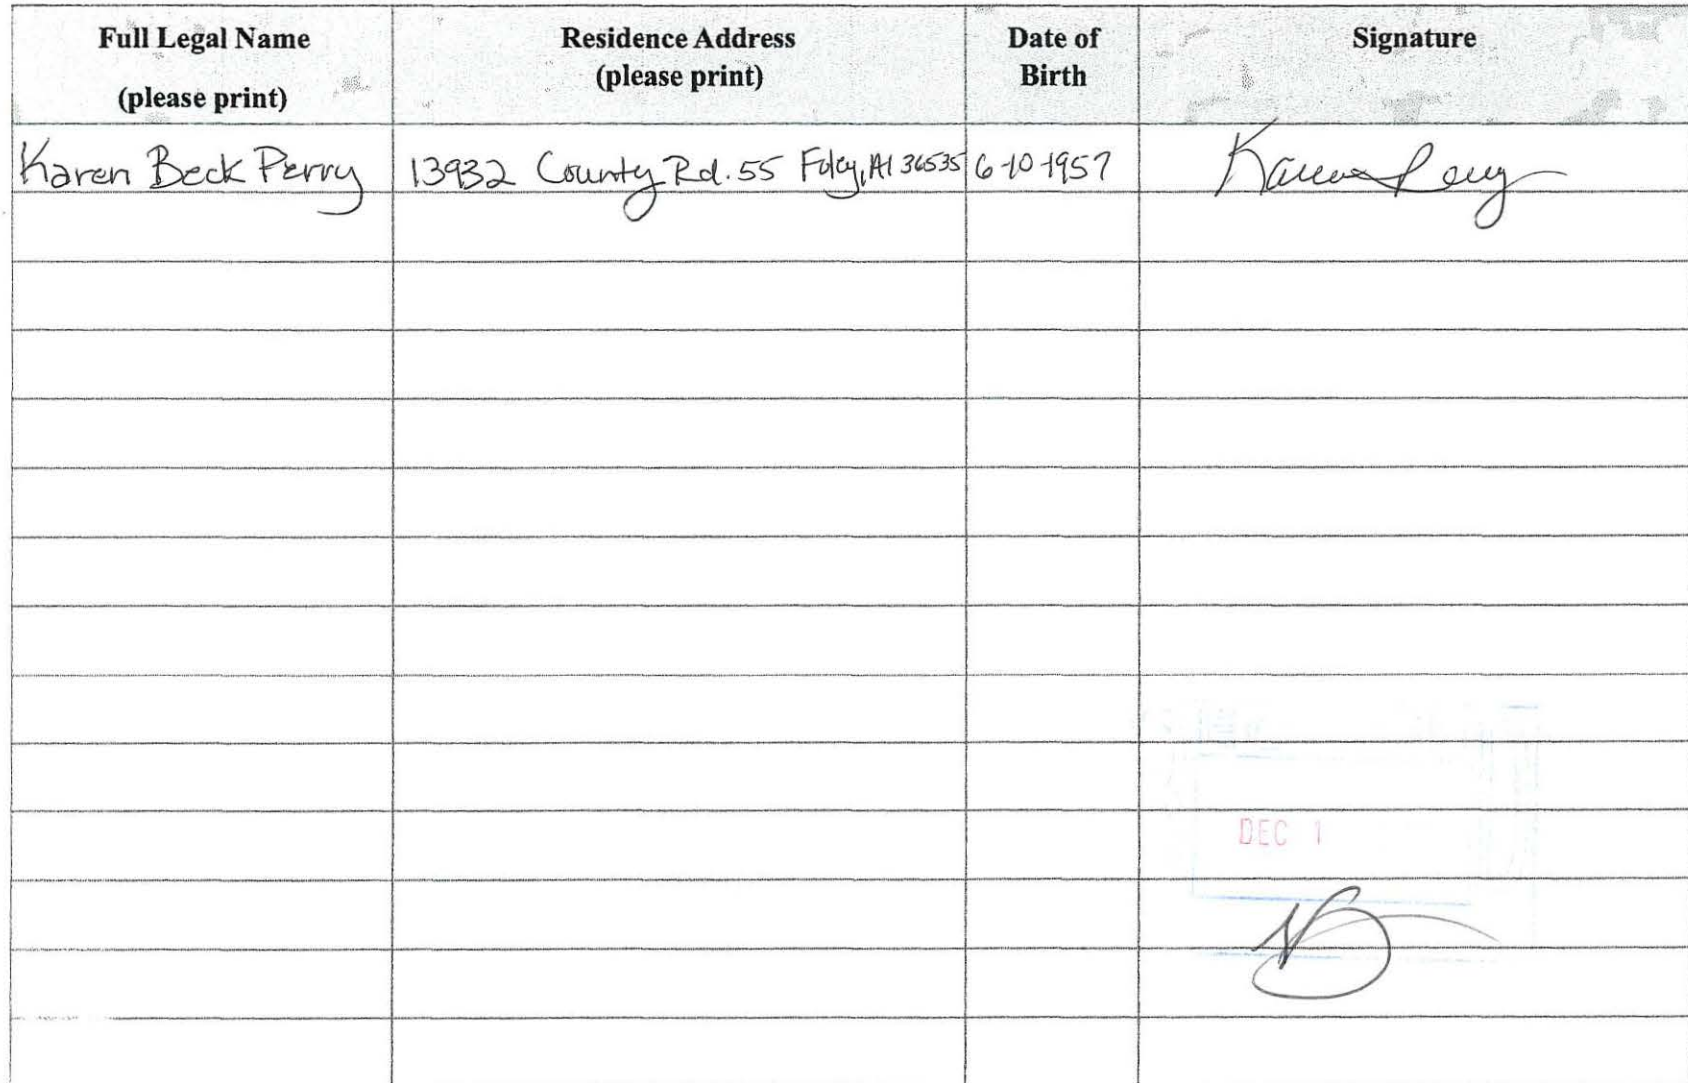 Full Legal Name
(please print)
Residence Address
(please print)
Date of
Birth
Signature
Karen Beck Perry 13932 County Rd. 55 Foley, Al 36535 6-10-1957 Karen Perry
DEC 1